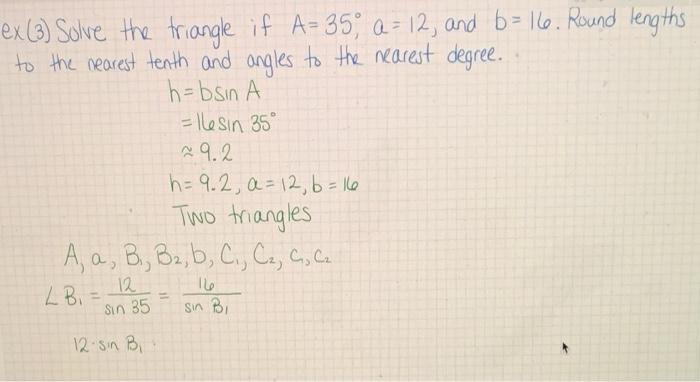 ex(3) Solve the triangle if A=35°, a=12, and b=16. Round lengths
to the nearest tenth and angles to the nearest degree.
h=b sin A
=16 sin 35°
≈9.2
h=9.2, a=12, b=16
Two triangles
A, a, B₁, B₂, b, C₁, C₂, c₁, c₂
∠B₁ = 12/sin 35 = 16/sin B₁
12·sin B₁